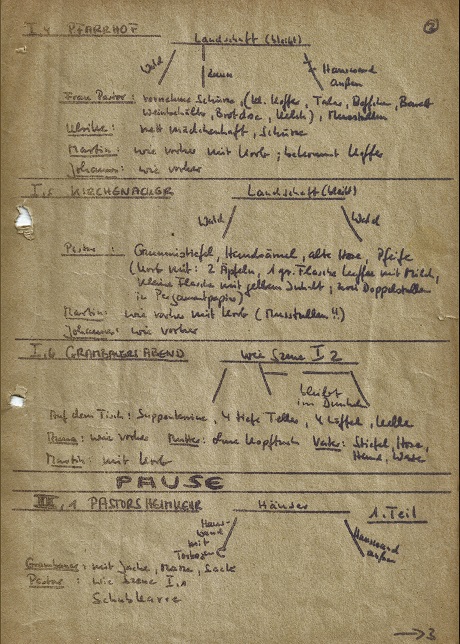 I.4 PFARRHOF
②
Landschaft (bleibt)
Wald
Zaun
Hauswand
außen
Frau Pastor: vornehme Schürze, (kl. Koffer, Talar, Beffchen, Barett
Weinbehälter, Brotdose, Kelch), Musstullen
Ulrike: nett mädchenhaft, Schürze
Martin: wie vorher mit Korb; bekommt Koffer
Johannes: wie vorher
I,5 KIRCHENACKER
Landschaft (bleibt)
Wald
Wald
Pastor: Gummistiefel, Hemdsärmel, alte Hose, Pfeife
(Korb mit: 2 Äpfeln, 1 gr. Flasche Kaffee mit Milch,
kleine Flasche mit gelbem Inhalt; zwei Doppelstullen
in Pergamentpapier)
Martin: wie vorher mit Korb (Musstullen!!)
Johannes: wie vorher
I,6 GRAMBAUERS ABEND
wie Szene I 2
bleibt
im Dunkeln
Auf dem Tisch: Suppenterrine, 4 tiefe Teller, 4 Löffel, Kelle
wie vorher Mutter: ohne Kopftuch Vater: Stiefel, Hose,
Hemd, Weste
Martin: mit Korb
PAUSE
III,1 PASTORS HEIMKEHR
Häuser
1. Teil
Haus-
wand
mit
Torbogen
Hauswand
außen
Grambauer: mit Jacke, Mütze, Sack
Pastor: wie Szene I,1
Schubkarre
→3